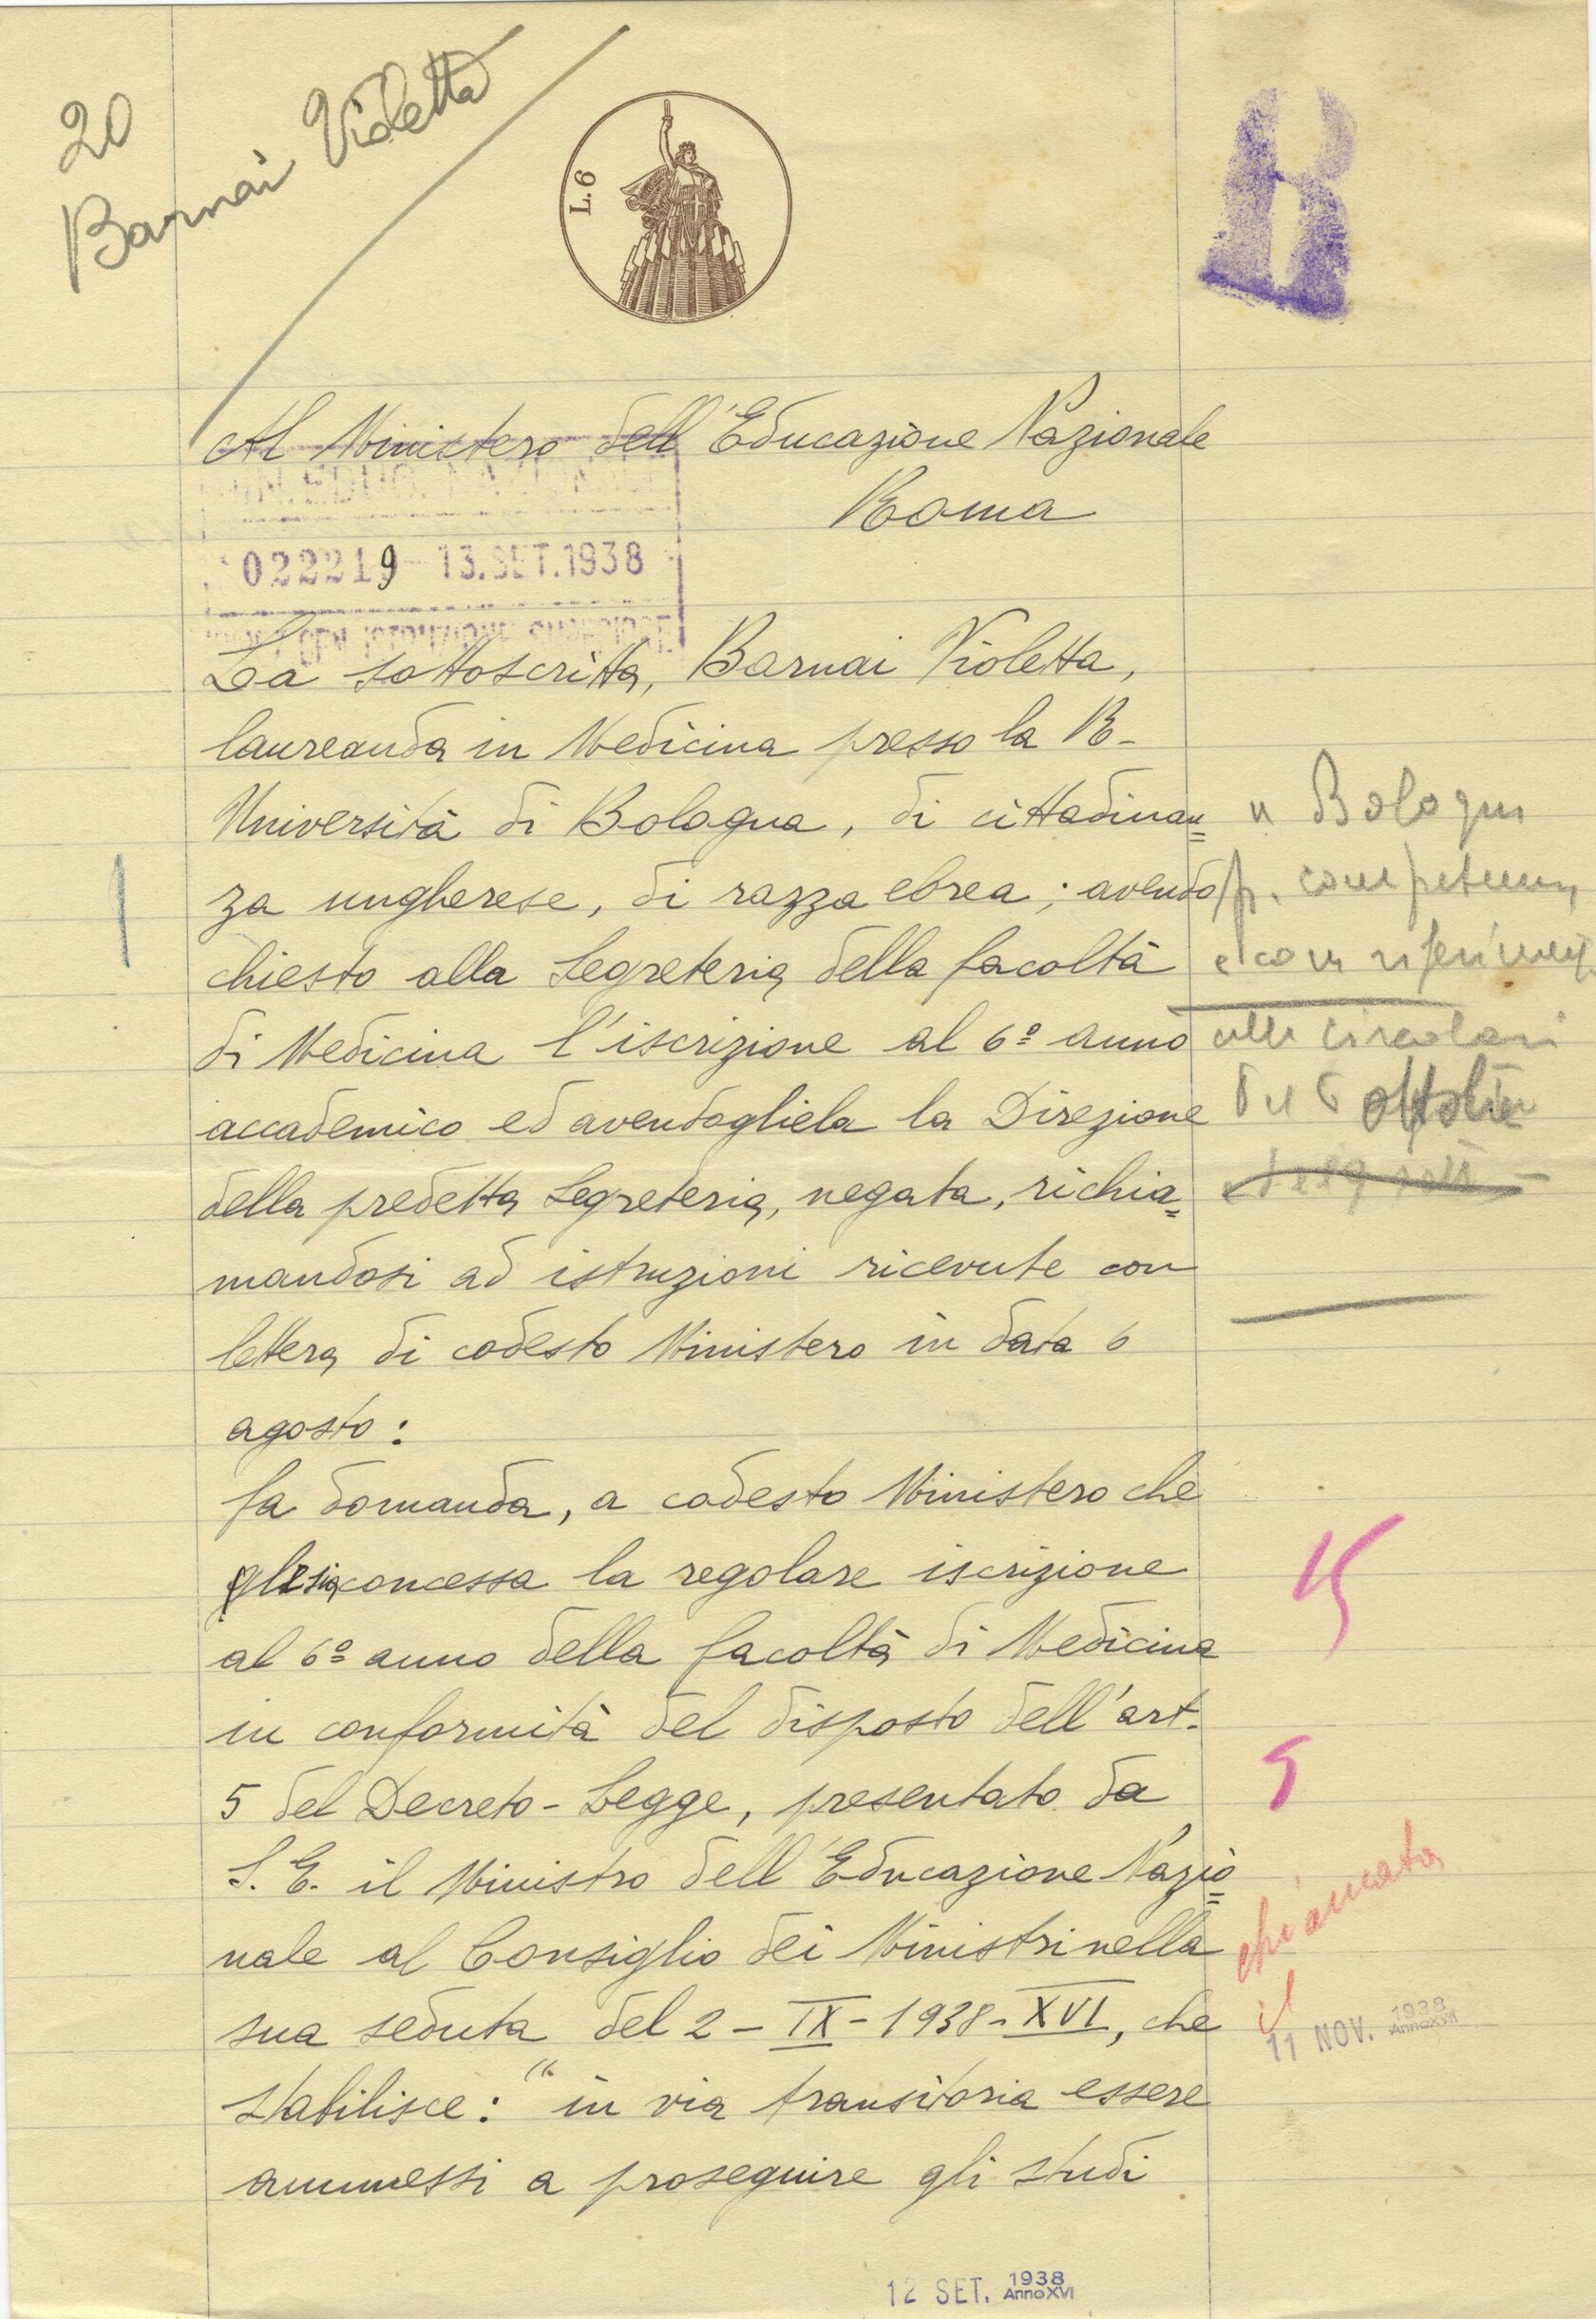 20
Barnai Violetta
L. 6
B
Al Ministero dell'Educazione Nazionale
Roma
MIN. EDUC. NAZIONALE
022219 13. SET. 1938
La sottoscritta, Barnai Violetta,
laureanda in Medicina presso la R.
Università di Bologna, di cittadinan=
za ungherese, di razza ebrea; avendo
chiesto alla Segreteria della facoltà
di Medicina l'iscrizione al 6º anno
accademico ed avendogliela la Direzione
della predetta Segreteria, negata, richia=
mandosi ad istruzioni ricevute con
lettera di codesto Ministero in data 6
agosto:
fa domanda, a codesto Ministero che
gli sia concessa la regolare iscrizione
al 6º anno della facoltà di Medicina
in conformità del disposto dell'art.
5 del Decreto-Legge, presentato da
S. E. il Ministro dell'Educazione Nazio=
nale al Consiglio dei Ministri nella
sua seduta del 2-IX-1938-XVI, che
stabilisce: "in via transitoria essere
ammessi a proseguire gli studi
a Bologna
p. competenza
e con riferimento
alle circolari
del 6 ottobre
5
chiamata
il
11 NOV. 1938
Anno XVII
12 SET. 1938
Anno XVI